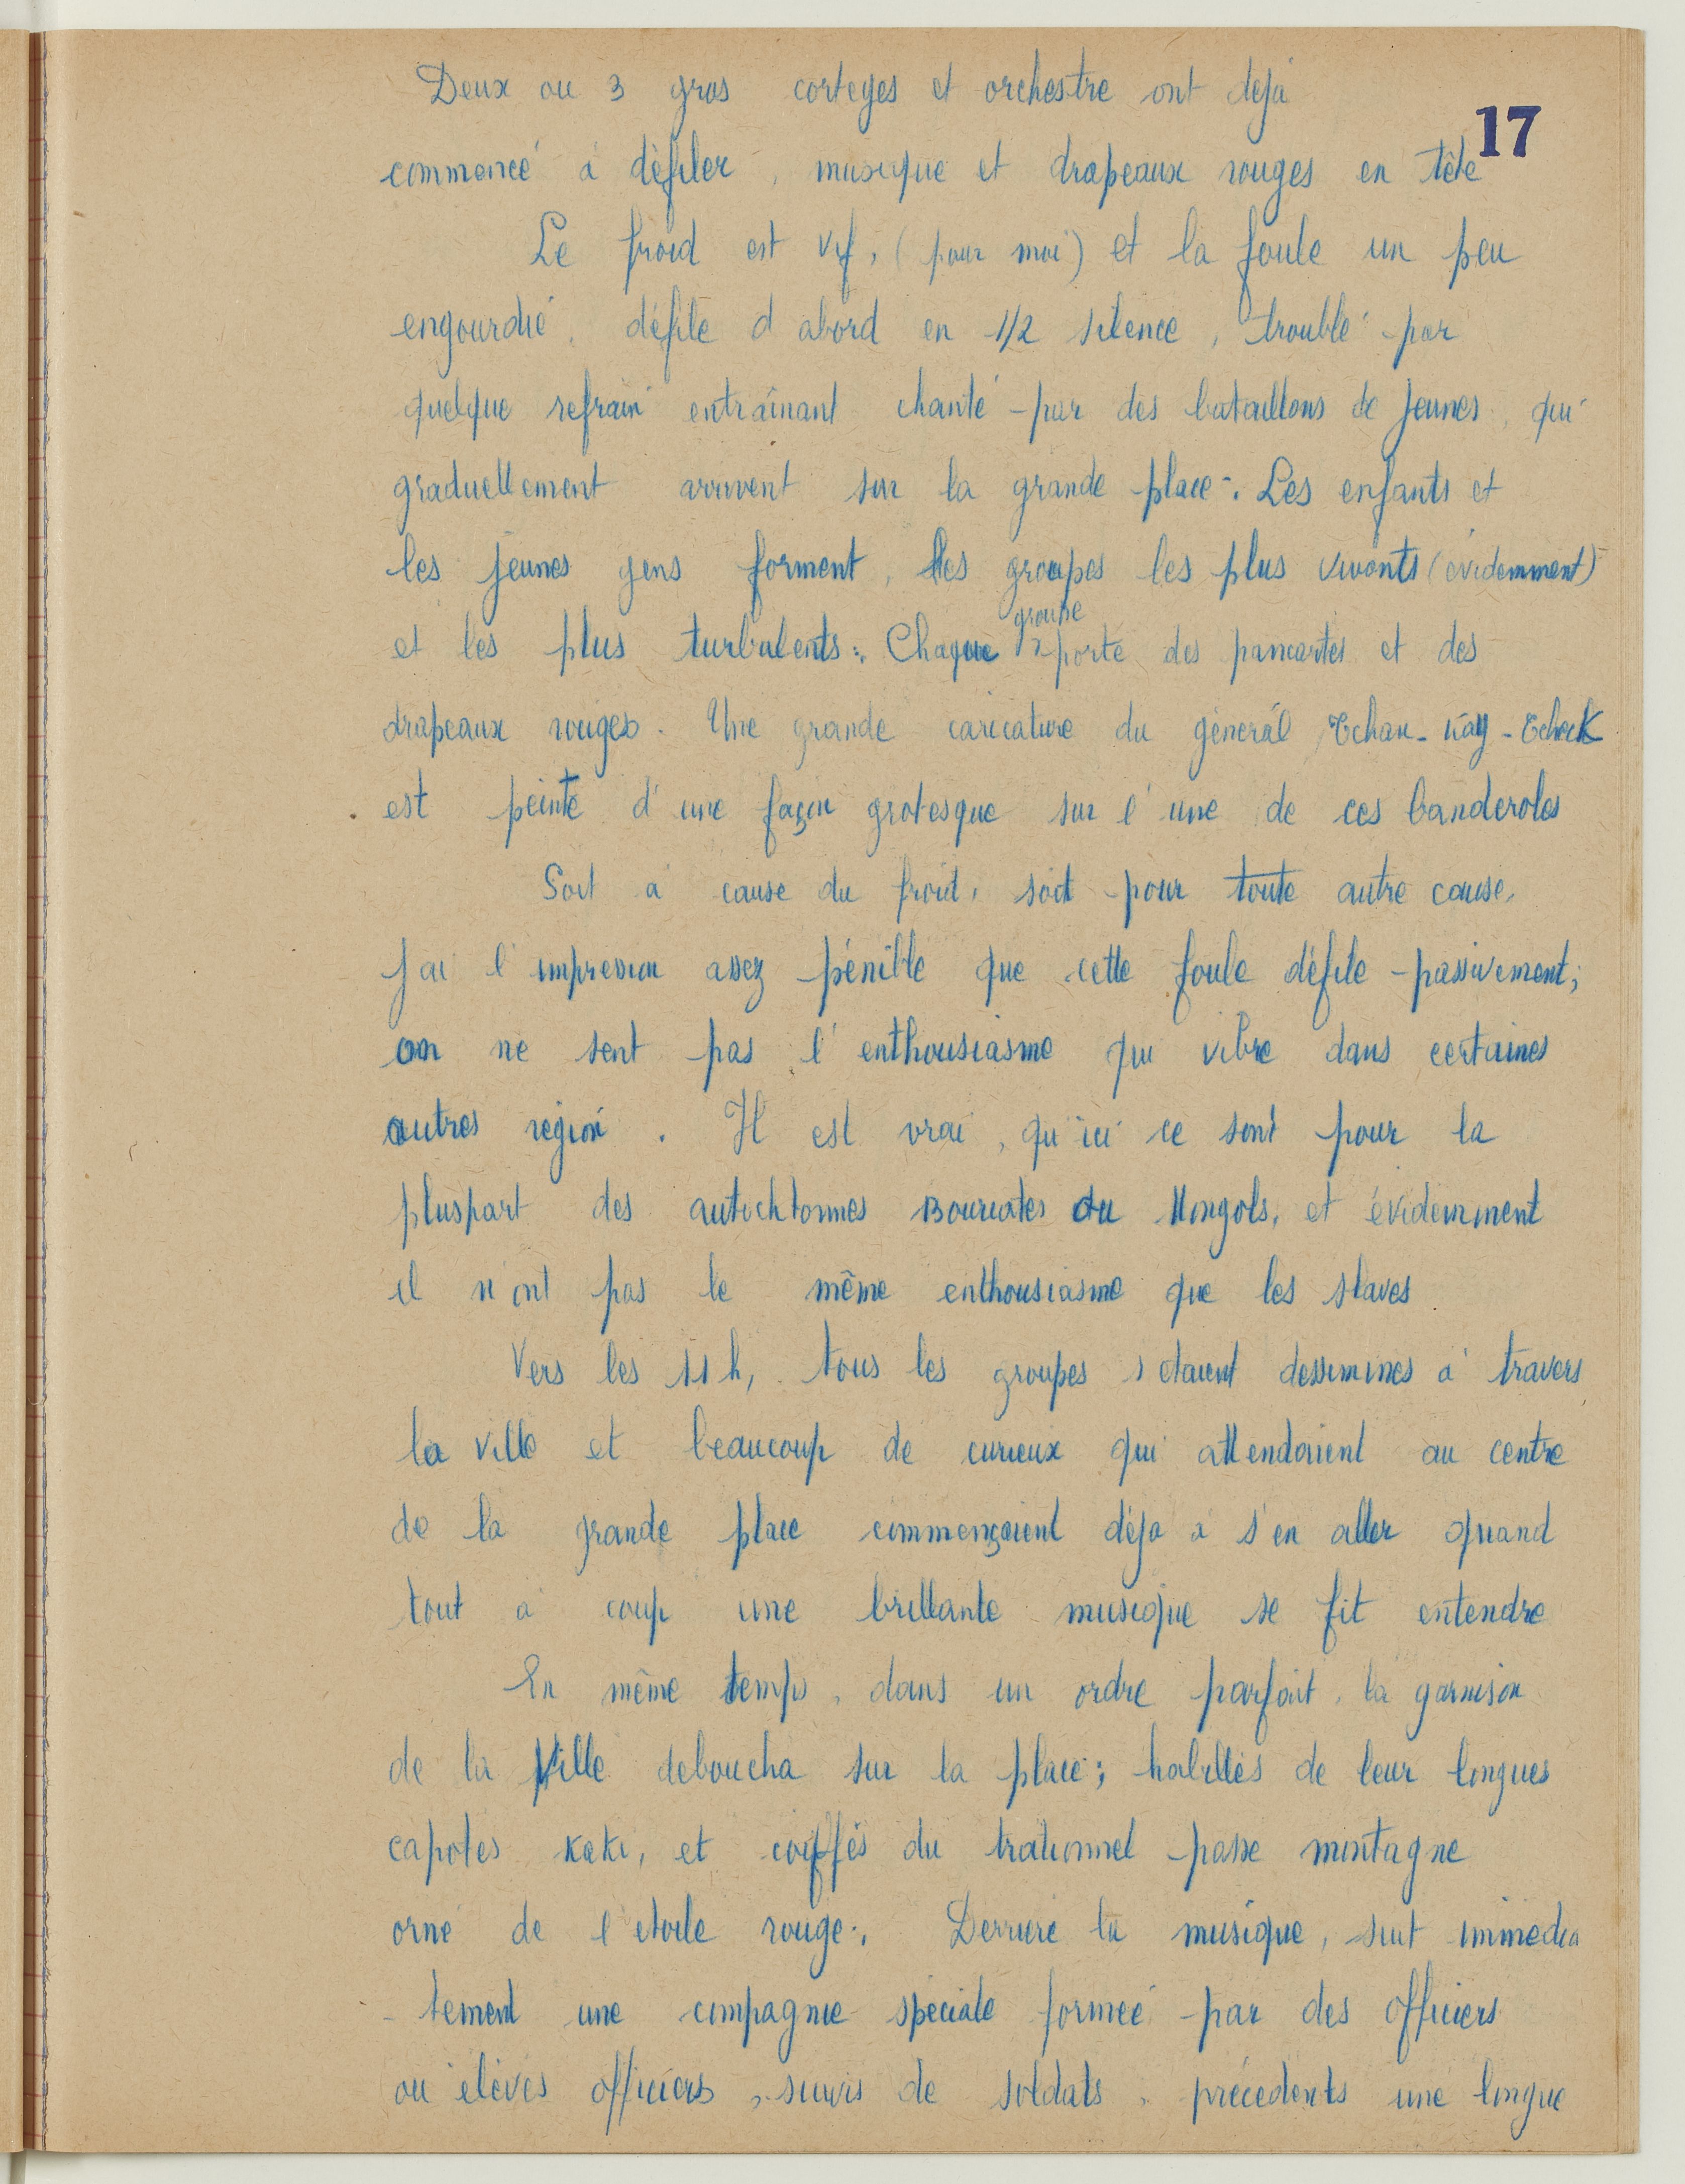 Deux ou 3 gros corteges et orchestre ont déjà
17
commencé à défiler, musique et drapeaux rouges en tête
Le froid est vif, (pour moi) et la foule un peu
engourdie, défile d'abord en 1/2 silence, troublé par
quelque refrain entraînant chanté par des bataillons de jeunes, qui
graduellement arrivent sur la grande place. Les enfants et
les jeunes gens forment, les groupes les plus vivants (évidemment)
groupe
et les plus turbulents. Chaque porte des pancartes et des
drapeaux rouges. Une grande caricature du général Tchan-Kay-Tcheck
est peinte d'une façon grotesque sur l'une de ces banderoles
Soit à cause du froid, soit pour toute autre cause,
j'ai l'impression assez pénible que cette foule défile passivement;
on ne sent pas l'enthousiasme qui vibre dans certaines
autres région. Il est vrai, qu'ici ce sont pour la
pluspart des autochtonnes Bouriates ou Mongols, et évidemment
il n'ont pas le même enthousiasme que les slaves
Vers les 11 h, tous les groupes s'étaient desseminés à travers
la ville et beaucoup de curieux qui attendaient au centre
de la grande place commençaient déja à s'en aller quand
tout à coup une brillante musique se fit entendre
En même temps, dans un ordre parfait, la garnison
de la Ville deboucha sur la place; habillés de leur longues
capotes kaki, et coiffés du trationnel passe montagne
orné de l'etoile rouge. Derriere la musique, suit immédia
-tement une compagnie spéciale formeé par des officiers
ou élèves officiers, suivis de soldats, précédents une longue